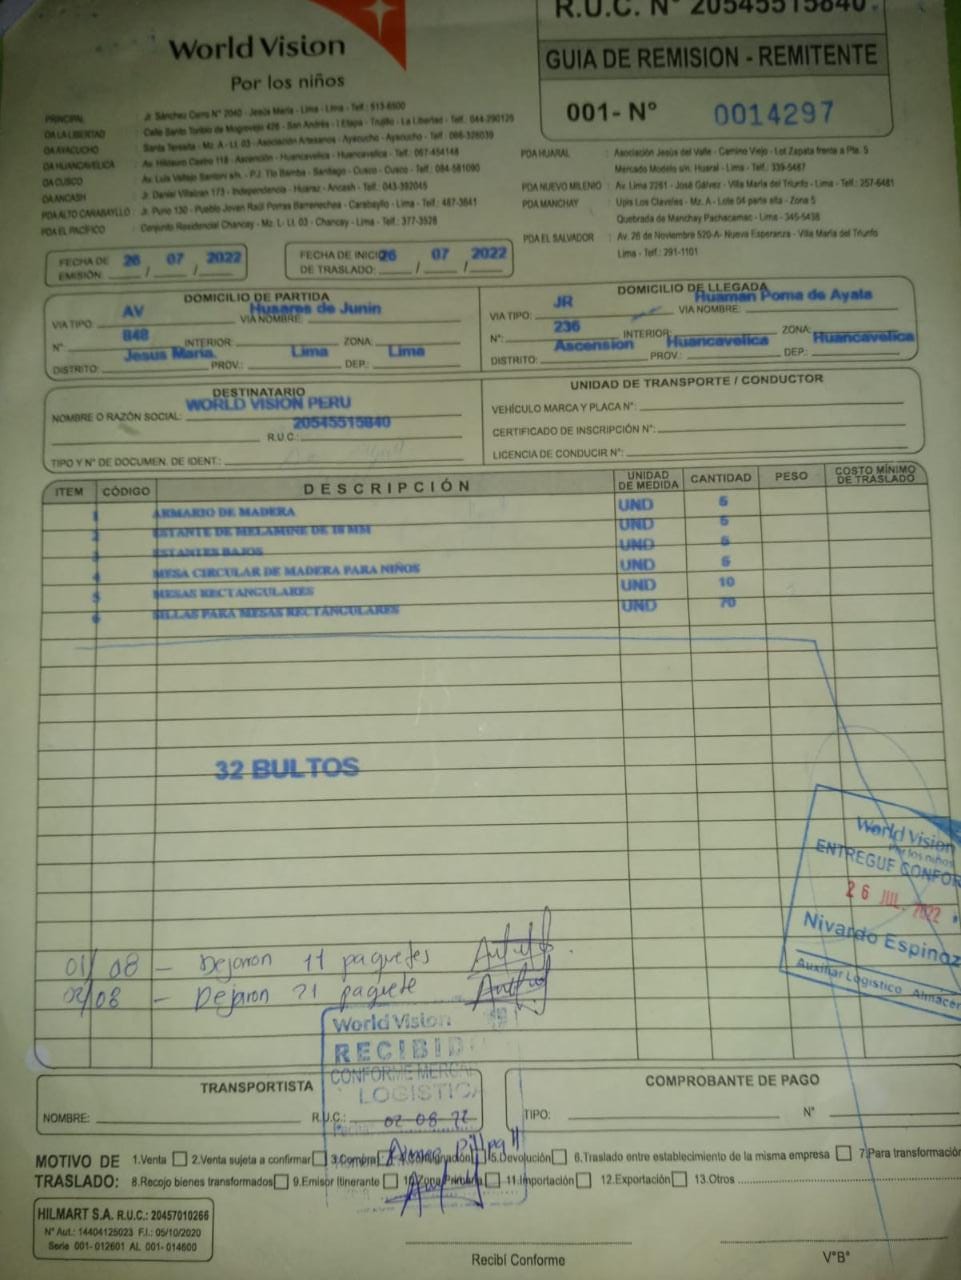 R.U.C. N° 20545515840
World Vision
Por los niños
GUIA DE REMISION - REMITENTE
001- N° 0014297
PRINCIPAL Jr. Sánchez Cerro N° 2040 - Jesús María - Lima - Lima - Telf.: 513-6500
DA LA LIBERTAD Calle Santo Toribio de Mogrovejo 426 - San Andrés - I Etapa - Trujillo - La Libertad - Telf. 044-290126
DA AYACUCHO Santa Teresita - Mz. A - Lt. 03 - Asociación Artesanos - Ayacucho - Ayacucho - Telf.
DA HUANCAVELICA Av. Hildauro Castro 118 - Ascensión - Huancavelica - Huancavelica - Telf.: 067-454148
DA CUSCO Av. Luis Vallejo Santoni s/n. - P.J. Tío Bamba - Santiago - Cusco - Cusco - Telf.: 084-581090
DA ANCASH Jr. Daniel Villaizan 173 - Independencia - Huaraz - Ancash - Telf.: 043-392045
PDA ALTO CARABAYLLO : Jr. Puno 130 - Pueblo Joven Raúl Porras Barrenechea - Carabayllo - Lima - Telf.: 487-3641
PDA EL PACÍFICO : Conjunto Residencial Chancay - Mz. L- Lt. 03 - Chancay - Lima - Telf.: 377-3528
PDA HUARAL : Asociación Jesús del Valle - Camino Viejo - Lot Zapata frente a Pte. 5
Mercado Modelo s/n. Huaral - Lima - Telf.: 339-5487
PDA NUEVO MILENIO : Av. Lima 2261 - José Gálvez - Villa María del Triunfo - Lima - Telf.: 257-6481
PDA MANCHAY : Upis Los Claveles - Mz. A - Lote 04 parte alta - Zona 5
Quebrada de Manchay Pachacamac - Lima - 345-5436
PDA EL SALVADOR : Av. 26 de Noviembre 520-A- Nueva Esperanza - Villa María del Triunfo
Lima - Telf.: 291-1101
FECHA DE EMISIÓN: 26 / 07 / 2022
FECHA DE INICIO DE TRASLADO: 26 / 07 / 2022
DOMICILIO DE PARTIDA
VIA TIPO: AV VIA NOMBRE: Husares de Junin
N°: 848 INTERIOR: ZONA:
DISTRITO: Jesus Maria. PROV.: Lima DEP.: Lima
DOMICILIO DE LLEGADA
VIA TIPO: JR VIA NOMBRE: Huaman Poma de Ayala
N°: 236 INTERIOR: ZONA:
DISTRITO: Ascension PROV.: Huancavelica DEP.: Huancavelica
DESTINATARIO
NOMBRE O RAZÓN SOCIAL: WORLD VISION PERU
R.U.C.: 20545515840
TIPO Y N° DE DOCUMEN. DE IDENT.:
UNIDAD DE TRANSPORTE / CONDUCTOR
VEHÍCULO MARCA Y PLACA N°:
CERTIFICADO DE INSCRIPCIÓN N°:
LICENCIA DE CONDUCIR N°:
ITEM CÓDIGO DESCRIPCIÓN UNIDAD DE MEDIDA CANTIDAD PESO COSTO MÍNIMO DE TRASLADO
1 ARMARIO DE MADERA UND 5
2 ESTANTE DE MELAMINE DE 18 MM UND 5
3 ESTANTES BAJOS UND 5
4 MESA CIRCULAR DE MADERA PARA NIÑOS UND 5
5 MESAS RECTANGULARES UND 10
6 SILLAS PARA MESAS RECTANGULARES UND 70
32 BULTOS
World Vision
Por los niños
ENTREGUE CONFOR
26 JUL. 2022
Nivardo Espinoz
Auxiliar Logístico Almacen
01/08 - Dejaron 11 paquetes
02/08 - Dejaron 21 paquete
World Vision
RECIBID
CONFORME MERCA
LOGISTICA
Fecha: 02-08-22
TRANSPORTISTA
NOMBRE: R.U.C.:
COMPROBANTE DE PAGO
TIPO: N°
MOTIVO DE TRASLADO: 1.Venta 2.Venta sujeta a confirmar 3.Compra 4.Consignación 5.Devolución 6.Traslado entre establecimiento de la misma empresa 7.Para transformación
8.Recojo bienes transformados 9.Emisor Itinerante 10.Zona Primaria 11.Importación 12.Exportación 13.Otros
HILMART S.A. R.U.C.: 20457010266
N° Aut.: 14404125023 F.I.: 05/10/2020
Serie 001- 012601 AL 001- 014600
Recibí Conforme
V°B°